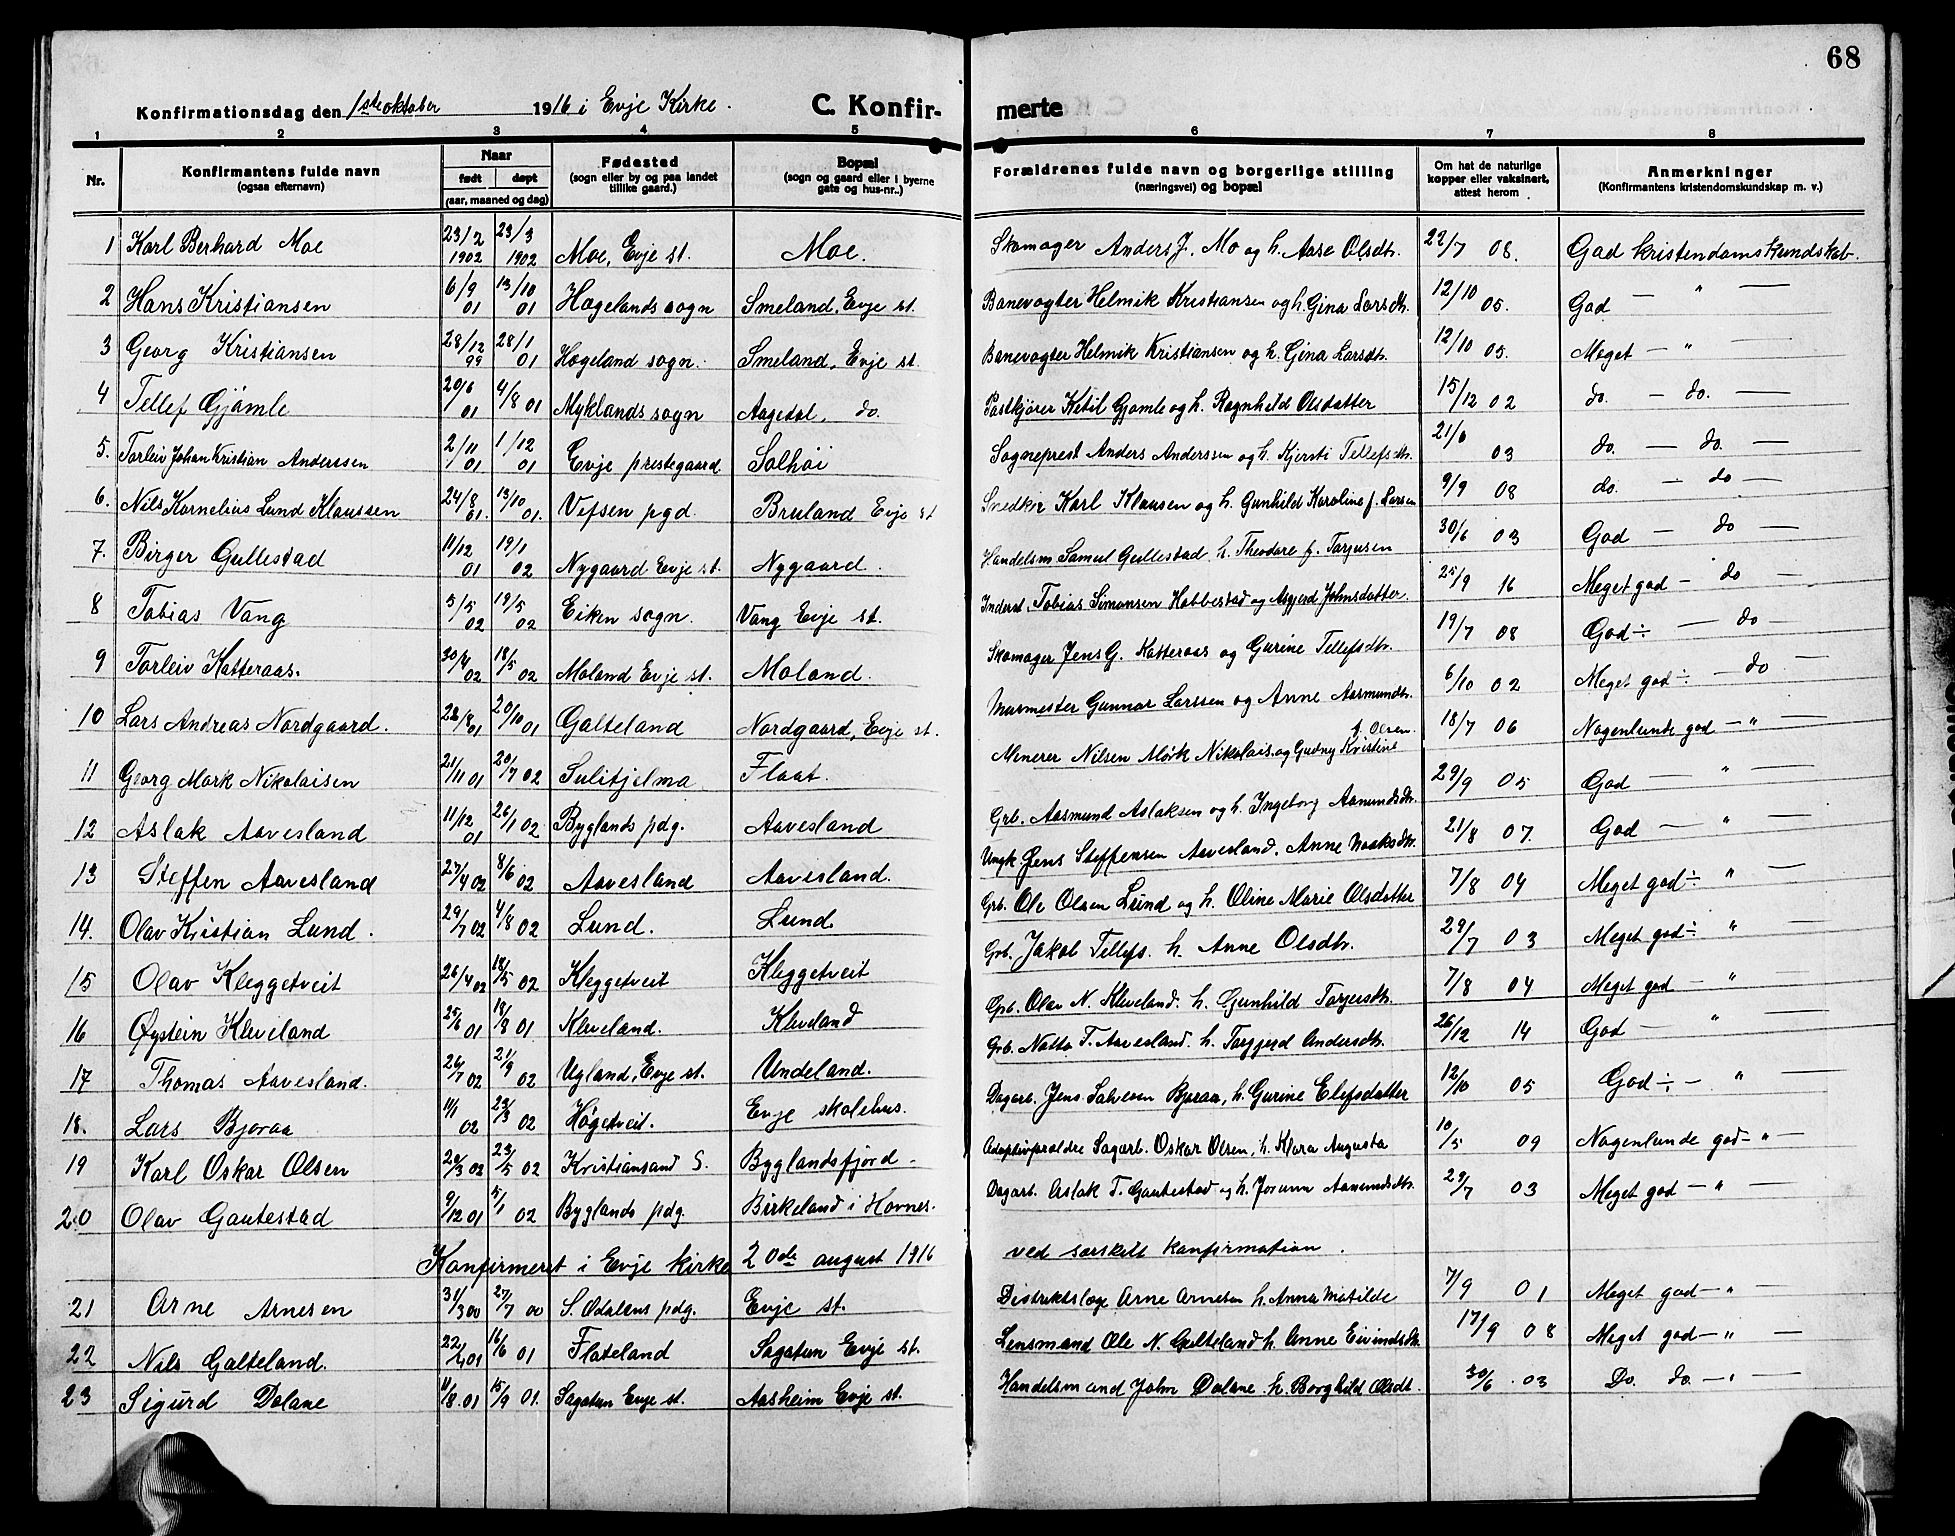 68
Konfirmationsdag den 1ste oktober 1916 i Evje Kirke. C. Konfir- merte
1 2 3 4 5 6 7 8
Nr. Konfirmantens fulde navn (ogsaa efternavn) Naar født døpt (aar, maaned og dag) Fødested (sogn eller by og paa landet tillike gaard.) Bopæl (sogn og gaard eller i byerne gate og hus-nr.,) Forældrenes fulde navn og borgerlige stilling (næringsvei) og bopæl Om hat de naturlige kopper eller vaksinert, attest herom Anmerkninger (Konfirmantens kristendomskundskap m. v.)
1 Karl Berhard Moe 23/2 1902 23/3 1902 Moe, Evje st. Moe. Skomager Anders J. Mo og h. Aase Olsdtr. 22/7 08. God kristendomskundskab.
2 Hans Kristiansen 6/9 01 13/10 01 Hægelands sogn Smeland, Evje st. Banevogter Helmik Kristiansen og h. Gina Larsdtr. 12/10 05. God — " —
3 Georg Kristiansen 28/12 99 28/1 01 Hægeland sogn. Smeland, Evje st. Banevogter Helmik Kristiansen og h. Gina Larsdtr. 12/10 05. Meget — " —
4 Tellef Gjømle 20/6 01 4/8 01 Myklands sogn Aagedal, do. Postkjører Ketil Gjømle og h. Ragnhild Olsdatter 15/12 02 do. — do. —
5. Torleiv Johan Kristian Anderssen 2/11 01 1/12 01 Evje prestegaard Solhøi Sogneprest Anders Anderssen og h. Kjersti Tellefsdtr. 21/6 03 do. — do. —
6. Nils Kornelius Lund Klaussen 24/8 01. 13/10 01. Vefsen pgd Bruland Evje st Snedker Karl Klausen og h. Gunhild Karoline f. Larsen 9/9 08 do. — do —
7. Birger Gullestad 11/12 01 19/1 02 Nygaard Evje st. Nygaard. Handelsm Samuel Gullestad h. Theodore f. Torjusen 30/6 03 God — do —
8 Tobias Vang 5/5 02 19/5 02 Eiken sogn. Vang Evje st. Inderst. Tobias Simonsen Hobbestad og Asgjerd Johnsdatter. 25/9 16 Meget god — do —
9 Torleiv Katteraas. 30/4 02 18/5 02 Moland Evje st. Moland. Skomager Jens G. Katteraas og Gurine Tellefsdtr. 19/7 08 God ÷ — do —
10 Lars Andreas Nordgaard. 22/8 01 20/10 01 Galteland Nordgaard, Evje st. Murmester Gunnar Larssen og Anne Aasmundtr. 6/10 02 Meget god ÷ — do —
11 Georg Mørk Nikolaisen 21/11 01 20/7 02 Sulitjelma Flaat. Menerer Nilsen Mørk Nikolais. og Gudny Kristine f. Olsen. 18/7 06 Nogenlunde god — " —
12 Aslak Aavesland 11/12 01 26/1 02 Byglands pdg. Aavesland Grb. Aasmund Aslaksen og h. Ingeborg Aamundsdtr. 29/9 05 God — " —
13 Steffen Aavesland 27/4 02 8/6 02 Aavesland Aavesland. Ungk Jens Steffensen Aavesland. Anne Isaksdtr. 21/8 07. God — " —
14. Olav Kristian Lund. 29/7 02 4/8 02 Lund. Lund. Grb. Ole Olsen Lund og h. Oline Marie Olsdatter 7/8 04 Meget god ÷ "
15 Olav Kleggetveit 26/4 02 18/5 02 Kleggetveit Kleggetveit Grb. Jakob Tellefs. h. Anne Olsdtr. 29/7 03 Meget god ÷ " —
16 Øystein Kleveland 25/6 01 18/8 01 Kleveland. Kleveland Grb. Olav N. Kleveland. h. Gunhild Torjusdtr. 7/8 04 Meget god — " —
17 Thomas Aavesland. 26/7 02 21/9 02 Ugland, Evje st. Undeland. Grb. Notto T. Aavesland. h. Torgjerd Andersdtr. 26/12 14 God — " —
18. Lars Bjoraa 11/1 02 23/3 02 Høgetveit. Evje skolehus. Dagarb. Jens Salvesen Bjoraa, h. Gurine Elefsdatter 12/10 05 God ÷ — " —
19 Karl Oskar Olsen 20/3 02 23/5 02 Kristiansand S. Byglandsfjord — Adoptivforældre Sagarb. Oskar Olsen, h. Klara Augusta 10/5 09 Nogenlunde god — " —
20 Olav Gautestad 9/12 01 5/1 02 Byglands pdg. Birkeland i Hornes. Dagarb. Aslak T. Gautestad og h. Jorunn Aamundsdtr. 29/7 03 Meget god — " —
Konfirmeret i Evje kirke 20de august 1916 ved særskilt konfirmation.
21 Arne Arnesen 31/3 00 27/7 00 S. Odalens pdg. Evje st. Distriktslæge Arne Arnesen h. Anna Matilde 7/9 01 Meget god — " —
22 Nils Galteland. 22/4 01 16/6 01 Flateland Sagatun Evje st. Lensmand Ole N. Galteland h. Anne Eivindsdtr. 17/9 08 Meget god — " —
23 Sigurd Dolane 11/8 01 15/9 01. Sagatun Evje st. Aasheim Evje st. Handelsmand John Dolane h. Borghild Olsdt. 30/6 03 Do. do. — " —